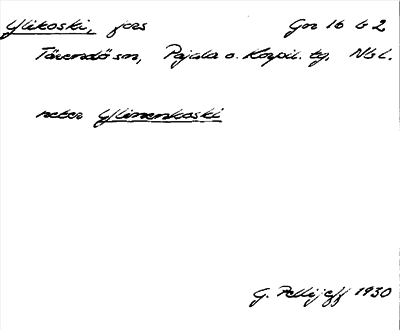 Ylikoski, fors Gnr 16 G 2
Tärendö sn, Pajala o. Korpil. tg. Nbl.
heter Ylinenkoski
G. Pellijeff 1930